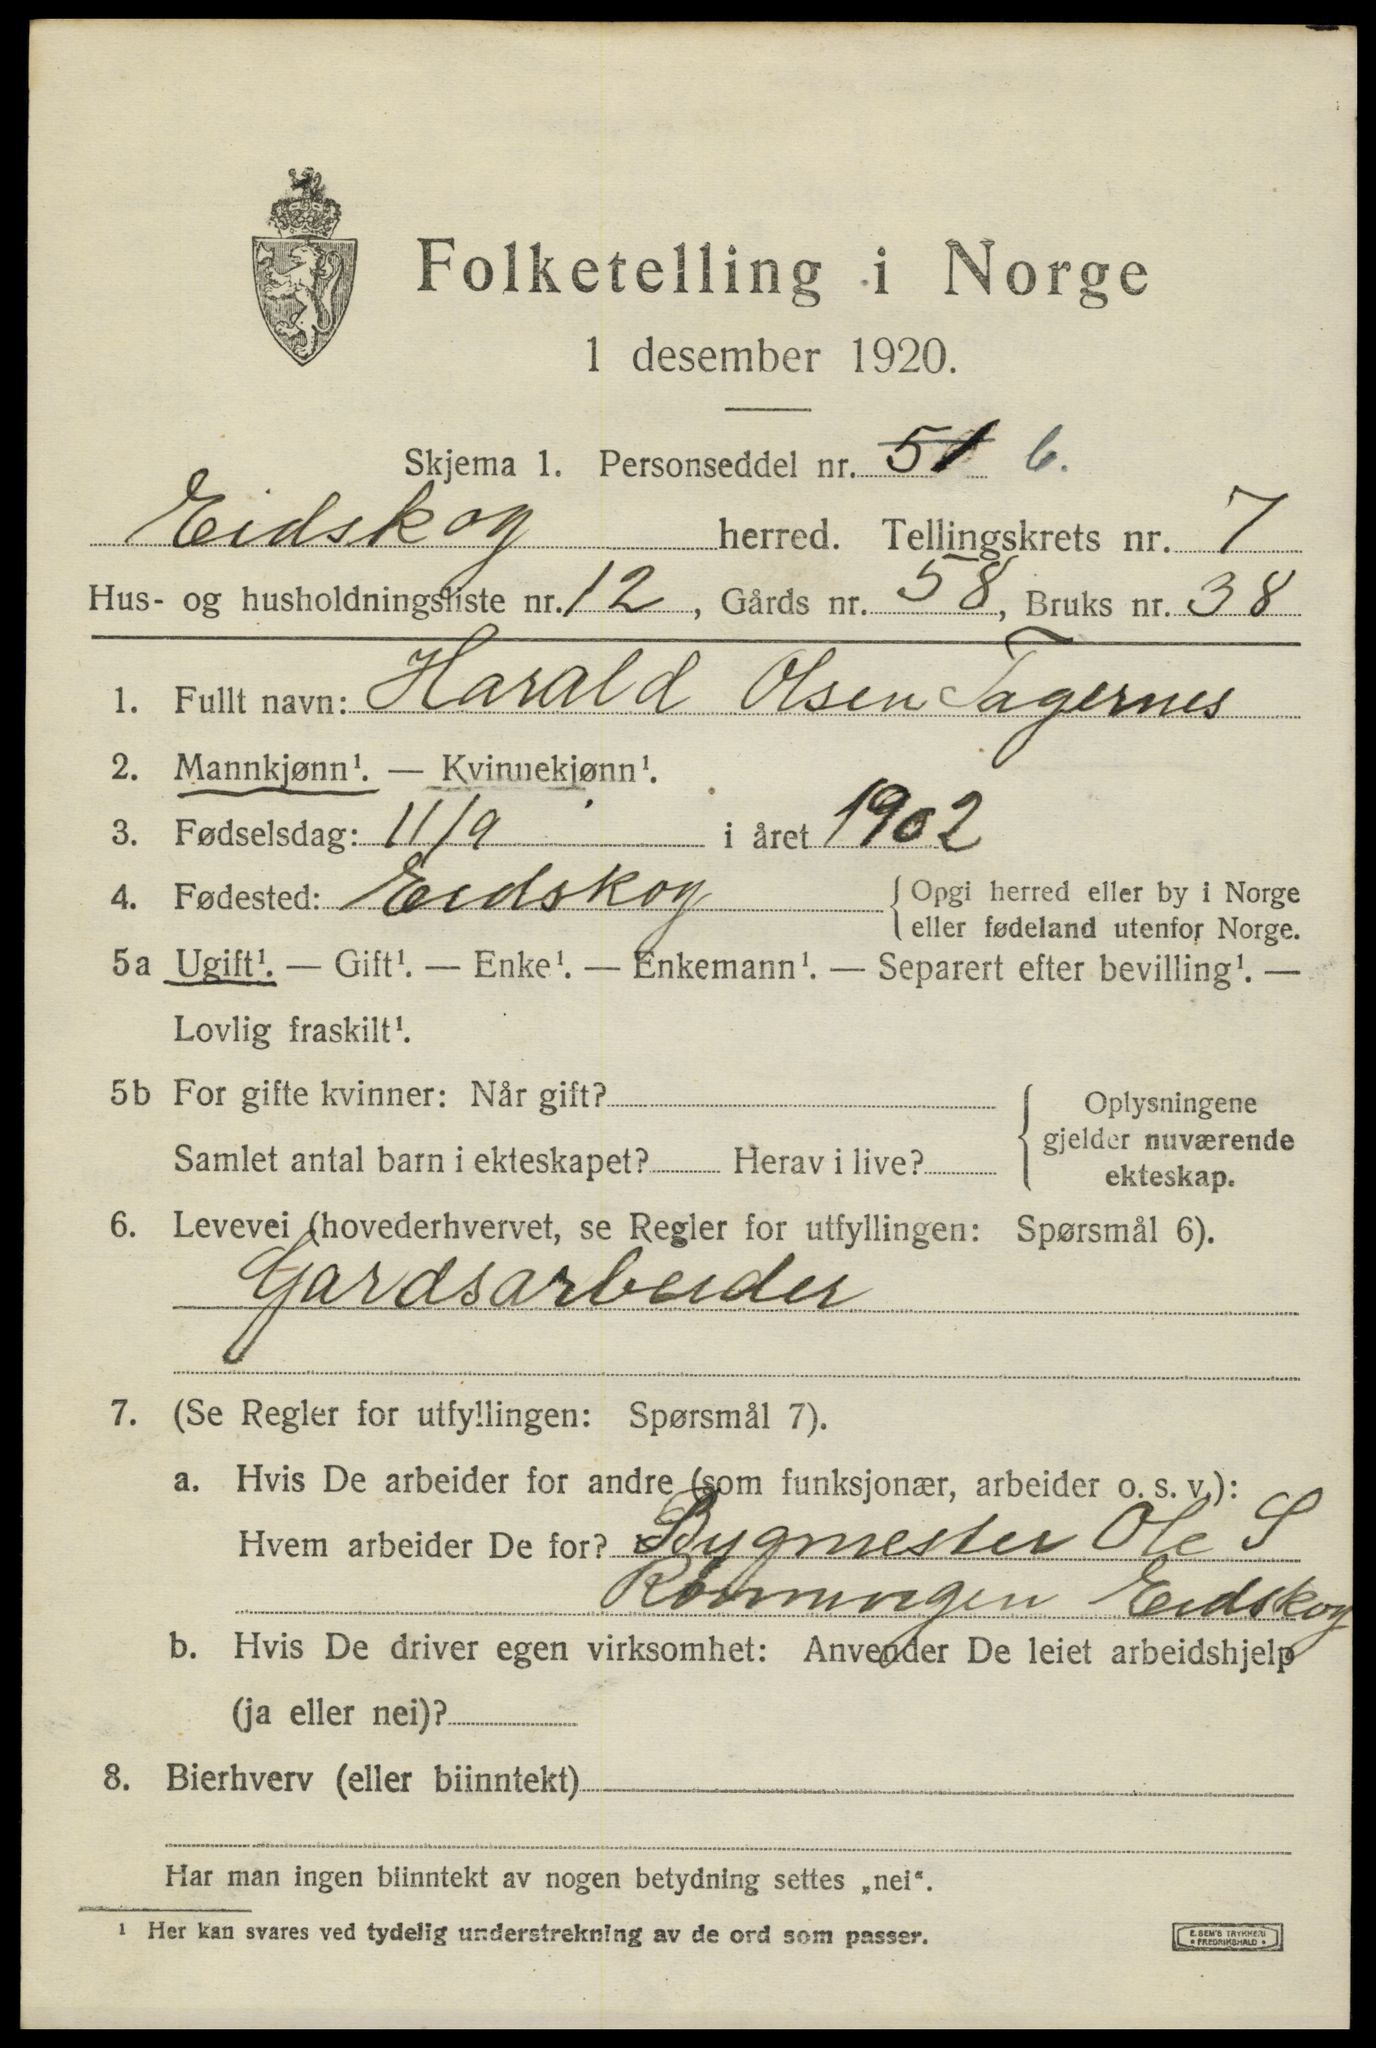 Folketelling i Norge
1 desember 1920.
Skjema 1. Personseddel nr. 51 6.
Eidskog herred. Tellingskrets nr. 7
Hus- og husholdningsliste nr. 12, Gårds nr. 58, Bruks nr. 38
1. Fullt navn: Harald Olsen Tagernes
2. Mannkjønn¹. — Kvinnekjønn¹.
3. Fødselsdag: 11/9 i året 1902
4. Fødested: Eidskog { Opgi herred eller by i Norge
eller fødeland utenfor Norge.
5a Ugift¹. — Gift¹. — Enke¹. — Enkemann¹. — Separert efter bevilling¹. —
Lovlig fraskilt¹.
5b For gifte kvinner: Når gift?
Samlet antal barn i ekteskapet? Herav i live?
{ Oplysningene
gjelder nuværende
ekteskap.
6. Levevei (hovederhvervet, se Regler for utfyllingen: Spørsmål 6).
Gardsarbeider
7. (Se Regler for utfyllingen: Spørsmål 7).
a. Hvis De arbeider for andre (som funksjonær, arbeider o. s. v.):
Hvem arbeider De for? Bygmester Ole S
Rønningen Eidskog
b. Hvis De driver egen virksomhet: Anvender De leiet arbeidshjelp
(ja eller nei)?
8. Bierhverv (eller biinntekt)
Har man ingen biinntekt av nogen betydning settes „nei“.
¹ Her kan svares ved tydelig understrekning av de ord som passer.
E. SEM'S TRYKKERI
• FREDRIKSHALD •